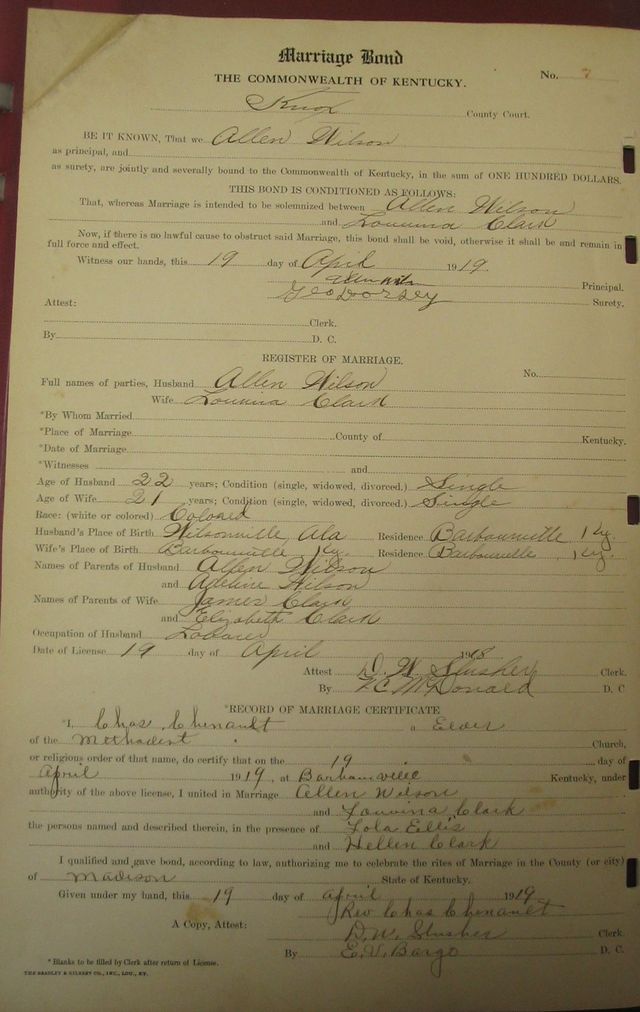 Marriage Bond
THE COMMONWEALTH OF KENTUCKY.
No. 7
Knox County Court.
BE IT KNOWN, That we Allen Wilson
as principal, and
as surety, are jointly and severally bound to the Commonwealth of Kentucky, in the sum of ONE HUNDRED DOLLARS.
THIS BOND IS CONDITIONED AS FOLLOWS:
That, whereas Marriage is intended to be solemnized between Allen Wilson
and Louvina Clark
Now, if there is no lawful cause to obstruct said Marriage, this bond shall be void, otherwise it shall be and remain in
full force and effect.
Witness our hands, this 19 day of April 1919.
Allen Wilson Principal.
Geo Dorsey Surety.
Attest:
Clerk.
By D. C.
REGISTER OF MARRIAGE.
No.
Full names of parties, Husband Allen Wilson
Wife Louvina Clark
*By Whom Married
*Place of Marriage County of Kentucky.
*Date of Marriage
*Witnesses and
Age of Husband 22 years; Condition (single, widowed, divorced.) Single
Age of Wife 21 years; Condition (single, widowed, divorced.) Single
Race: (white or colored) Colored
Husband's Place of Birth Wilsonville, Ala Residence Barbourville, Ky.
Wife's Place of Birth Barbourville, Ky. Residence Barbourville, Ky.
Names of Parents of Husband Allen Wilson
and Adeline Wilson
Names of Parents of Wife James Clark
and Elizabeth Clark
Occupation of Husband Laborer
Date of License 19 day of April 1918
Attest D. W. Slusher Clerk.
By McDonald D. C
*RECORD OF MARRIAGE CERTIFICATE
*I, Chas. Chenault a Elder
of the Methodest Church,
or religious order of that name, do certify that on the 19 day of
April 1919, at Barbourville Kentucky, under
authority of the above license, I united in Marriage Allen Wilson
and Louvina Clark
the persons named and described therein, in the presence of Lola Ellis
and Hellen Clark
I qualified and gave bond, according to law, authorizing me to celebrate the rites of Marriage in the County (or city)
of Madison State of Kentucky.
Given under my hand, this 19 day of April 1919
Rev Chas Chenault
A Copy, Attest: D. W. Slusher Clerk
By E. V. Bargo D. C.
* Blanks to be filled by Clerk after return of License.
THE BRADLEY & GILBERT CO., INC., LOU., KY.